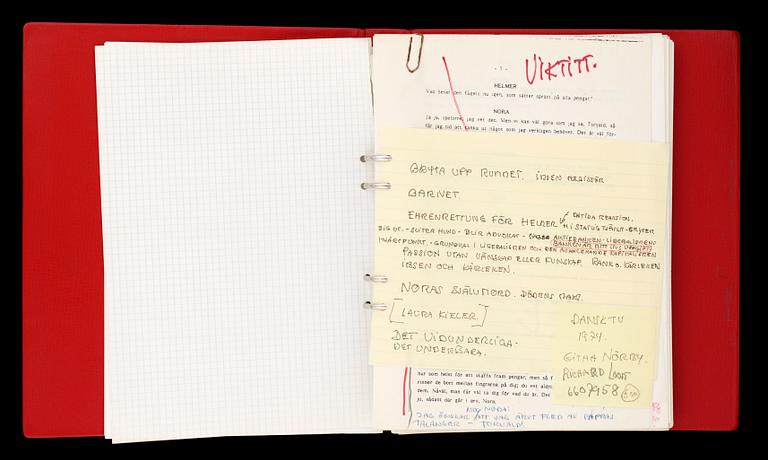 VIKTITT.
- 7 -
HELMER
Vad heter den fågeln nu igen, som sätter sprätt på alla pengar?
NORA
Ja ja, spelorre; jag vet det. Men vi kan väl göra som jag sa, Torvald, så
får jag tid att tänka ut något som jag verkligen behöver. Det är väl för-
BRYTA UPP RUMMET. IBSEN REGISSÖR
BARNET.
EHRENRETTUNG FÖR HELMER
DÅTIDA REAKTION.
SLITER HUND - BLIR ADVOKAT - ANTIBANKEN - LIBERALISMEN
BANKEN ÄR MITT LIVS UPPGIFT
- GRUNDVAL I LIBERALISMEN OCH DEN AVANCERANDE KAPITALISMEN
PASSION UTAN VÄNSKAP ELLER FUNSKAP. BANK O. KÄRLEKEN
IBSEN OCH KÄRLEKEN.
NORAS SJÄLVMORD. DÖDENS MAKT.
[LAURA KIELER]
DET VIDUNDERLIGA.
DET UNDERBARA.
DANSK TV
1974.
GITHA NÖRBY.
RICHARD
6607958
hur som helst för att skaffa fram pengar, men så f
rinner de bort mellan fingrarna på dig; du vet aldri
dem. Nåväl, man får väl ta dig för vad du är. Det
jo, sådant där går i arv, Nora.
NORA:
JAG ÖNSKAR ATT JAG ÄRVT FLER AV PAPPAS
TALANGER - TORVALD!